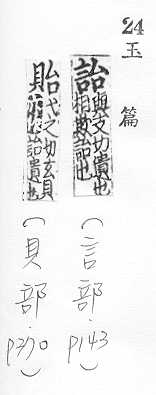 24 玉篇
詒與支切遺也
相欺詒也
(言部.p143)
貽弋之切玄貝
也詒遺也
(貝部.p370)